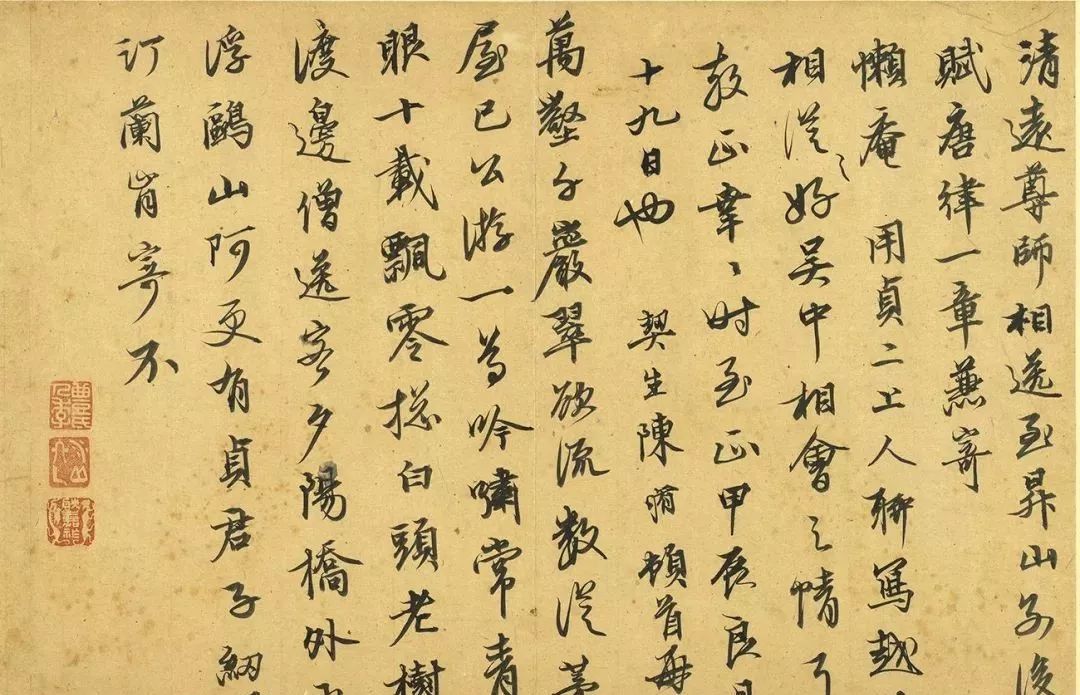 清遠尊師相送至昇山安後
賦唐律一章燕寄
懶庵 用貞二上人聊寫越
相從之好吴中相會之情
教正幸〻时至正甲辰良月
十九日也 契生陳脩頓首再
萬壑千巖翠欲流數從茅
屋已公游一為吟嘯常青
眼十載飄零總白頭老樹
渡邊僧送客夕陽橋外
浮鷗山阿更有貞君子紉
汀蘭肯寄不